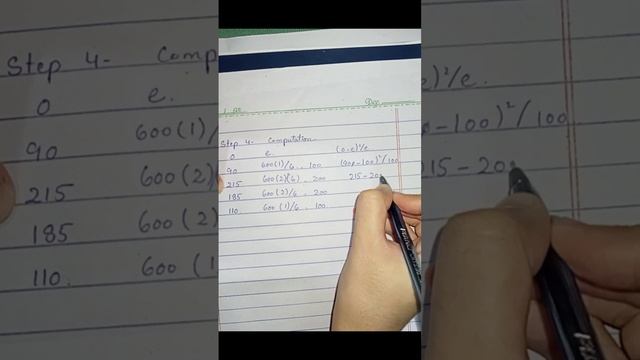 Step 4- Computation
0 e (0-e)²/e
90 600(1)/6 = 100 (90-100)²/100
215 600(2)(6) = 200 215-200
185 600(2)/6 = 200
110 600(1)/6 = 100